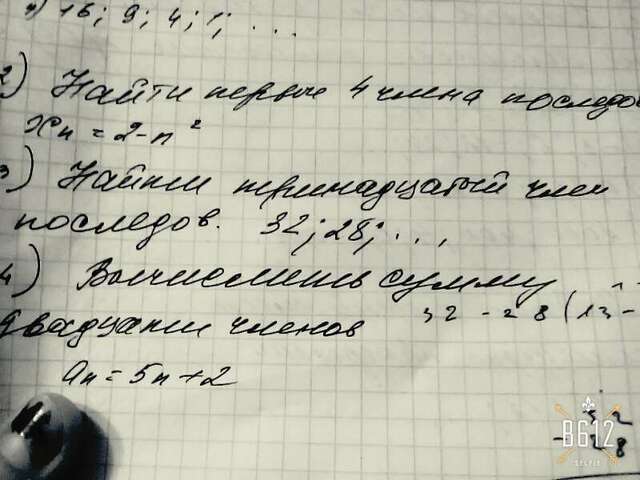 16; 9; 4; 1; ...
2) Найти первые 4 члена последов
xn = 2 - n²
3) Найти тринадцатый член
последов. 32; 28; ...
4) Вычислить сумму
двадцати членов
32 - 28 (13 -
an = 5n + 2
32
- 28
B612
SELFIE